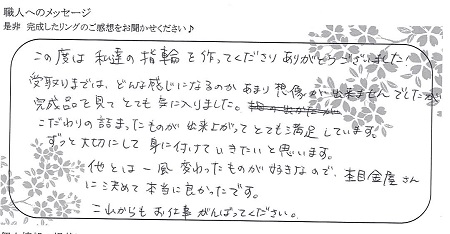 職人へのメッセージ
是非 完成したリングのご感想をお聞かせください♪
この度は 私達の 指輪を作ってくださり ありがとうございました!
受取りまでは、どんな感じになるのか あまり 想像が出来ませんでしたが
完成品を見て とても気に入りました。
こだわりの詰まったものが 出来上がって とても満足しています。
ずっと大切にして 身に付けていきたいと思います。
他とは一風 変わったものが好きなので、杢目金屋さん
に決めて本当に良かったです。
これからも お仕事 がんばってください。